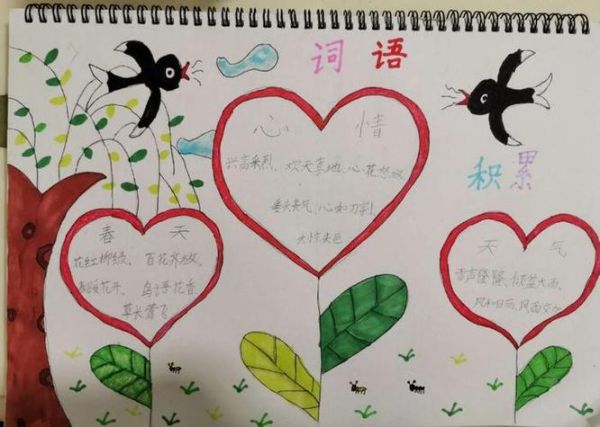 词语
积累
心情
兴高采烈、欢天喜地、心花怒放
垂头丧气、心如刀割
大惊失色
春天
花红柳绿、百花齐放、
春暖花开、鸟语花香
草长莺飞
天气
雷声隆隆、倾盆大雨、
风和日丽、风雨交加